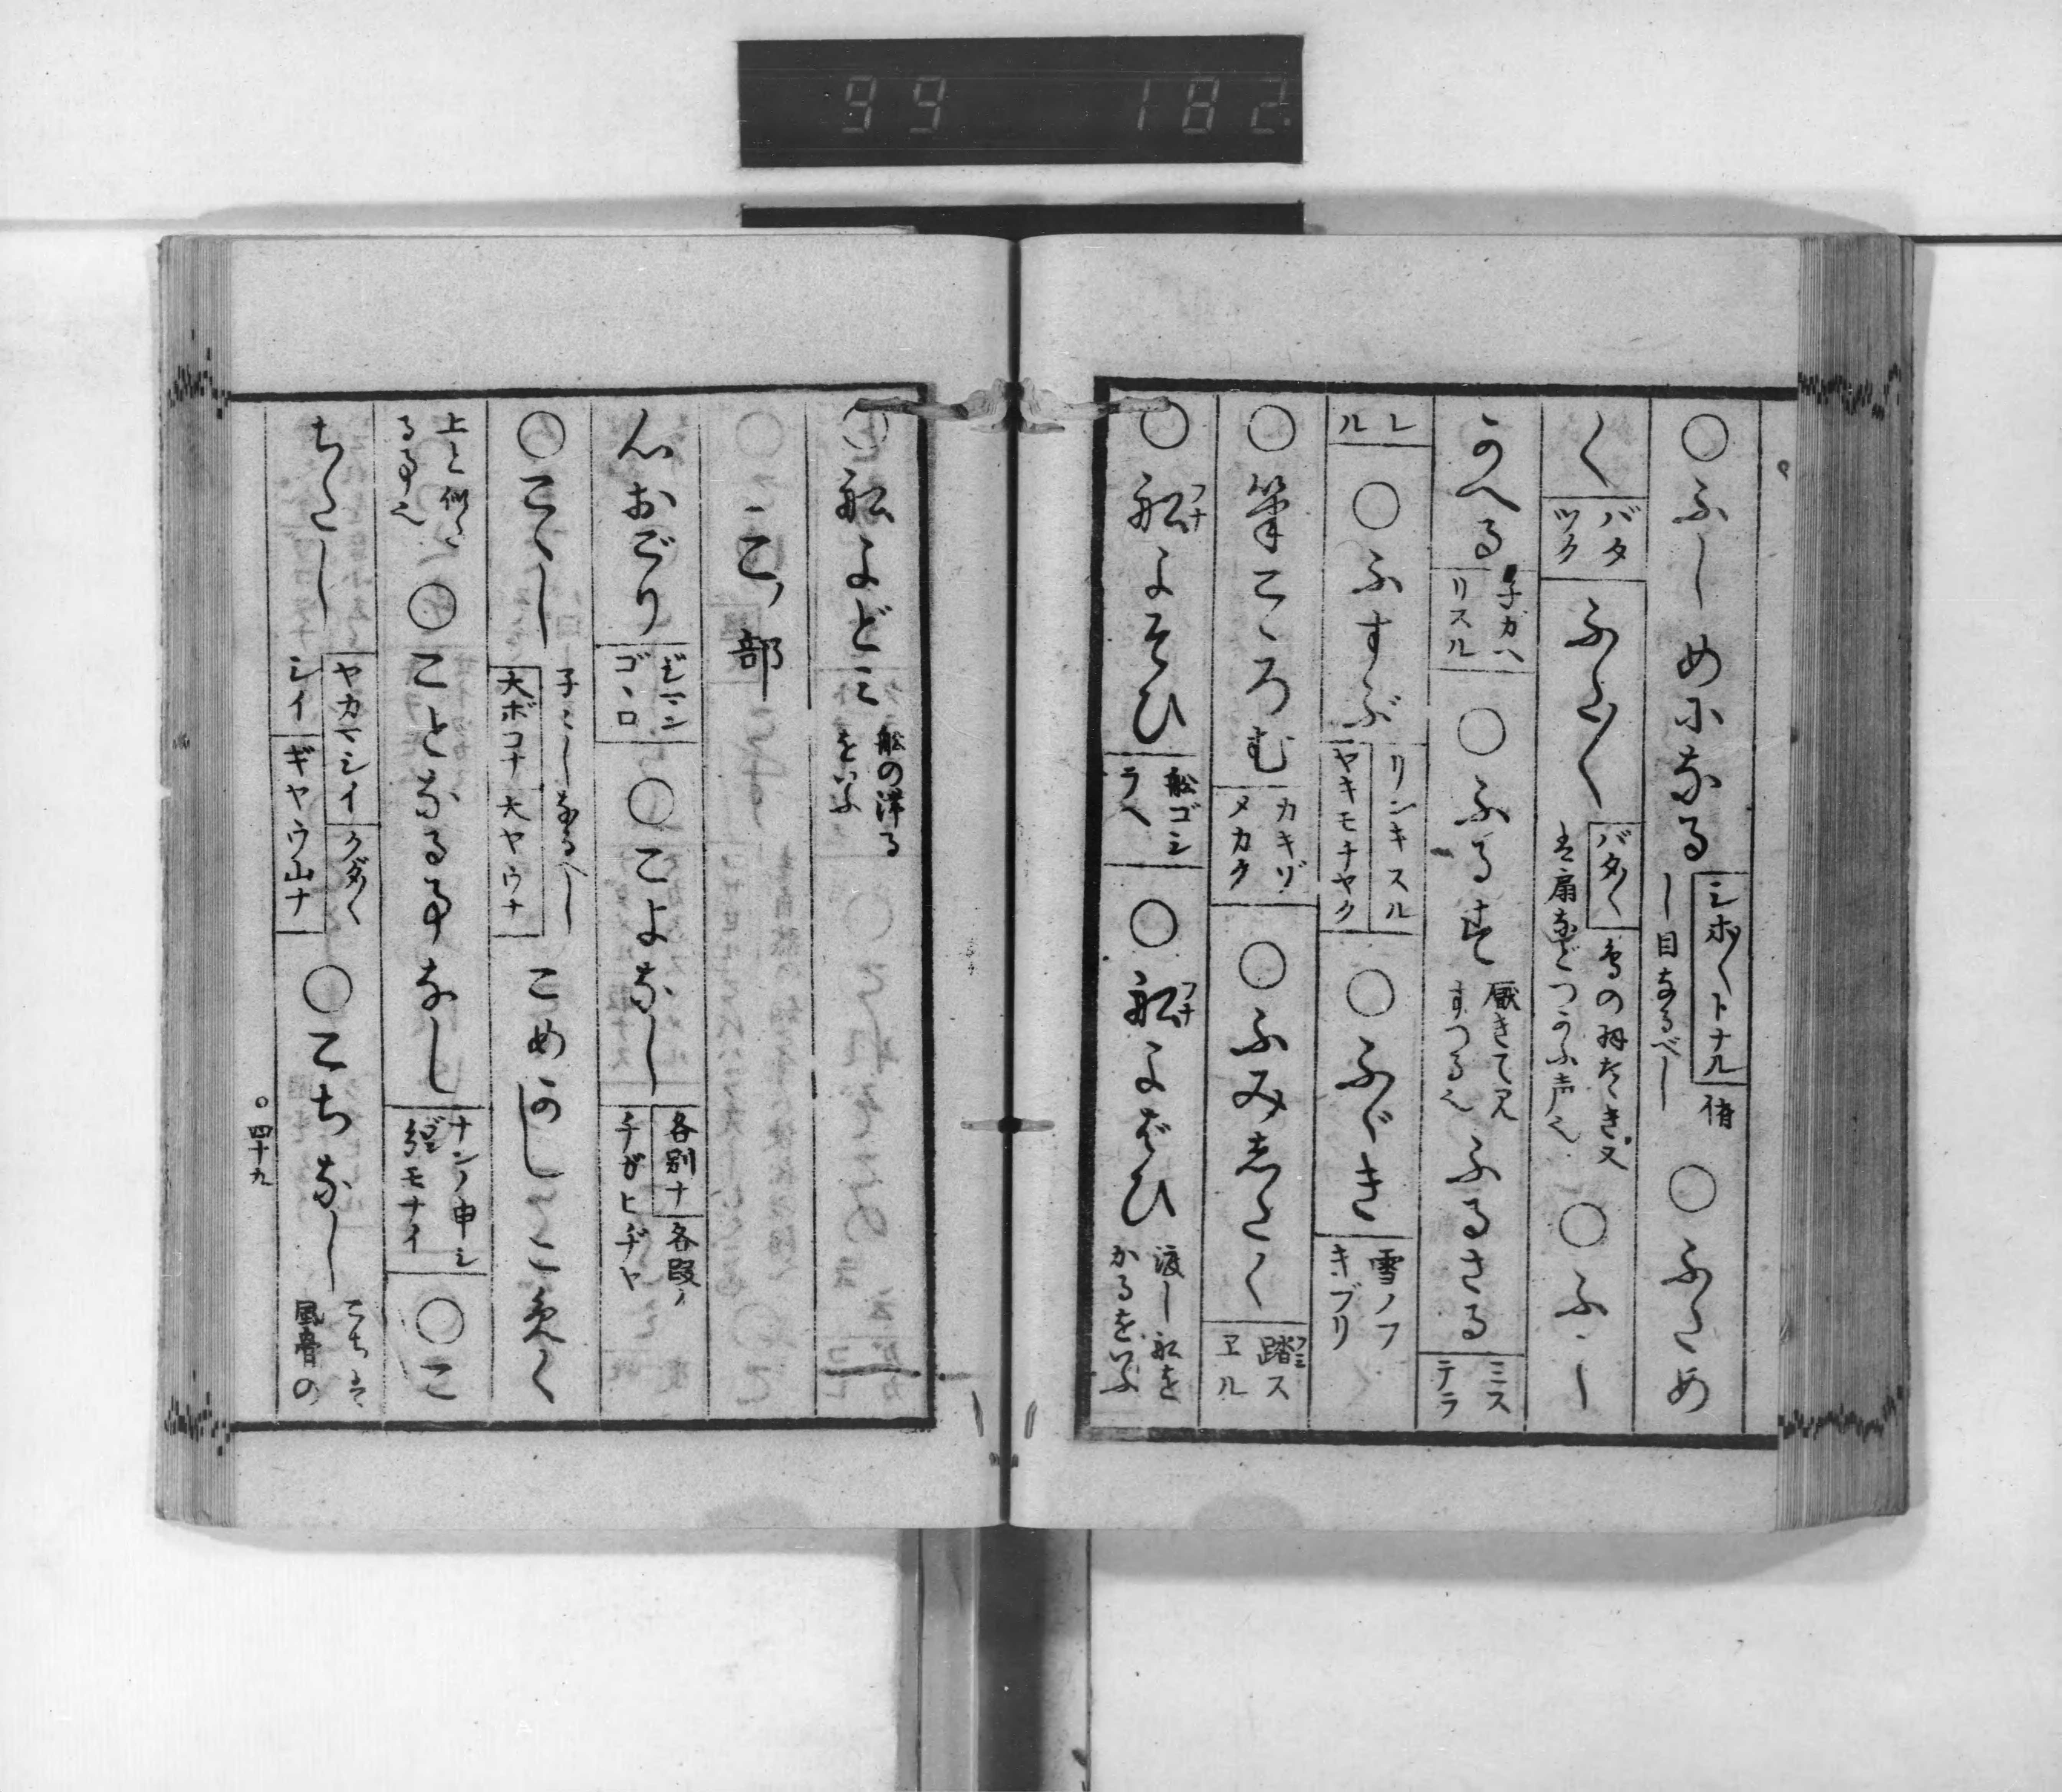 99 182
○ふしめになる シホ〳〵トナル 脩
し目なるべし ○ふため
く バタツク ふた〳〵 バタ〳〵 鳥の羽たゝき又
は扇などつかふ声也 ○ふゝし
かへる 子ガヘリスル ○ふるす 厭きて又
すつる也 ふるさる ミステラ
レル ○ふすぶ リンキスル
ヤキモチヤク ○ふゞき 雪ノフキブリ
○筆こゝろむ カキゾメカク ○ふみしたく 踏スヱル
○舩よそひ 舩ゴシラヘ ○舩よばひ 渡し舩を
かるをいふ
○舩よどみ 舩の滞る
をいふ
こノ部
心おごり ギマンゴヽロ ○こよなし 各別ナ 各段ノ
チガヒヂヤ
○こゝし 子こしなるべし
大ボコナ 大ヤウナ こめかし こ
上と似た
る事也 ○ことなる事なし ナンノ申シ
モナイ ○こ
ちたし ヤカマシイ クダ〳〵
シイ ギヤウ山ナ ○こちなし こちは
風骨の
○四十九